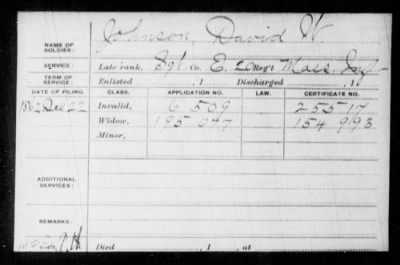 Johnson, David W.
NAME OF SOLDIER:
SERVICE: Late rank, Sgt. Co. E, 20 Reg't Mass. Inf.
TERM OF SERVICE: Enlisted , 1 Discharged , 1
DATE OF FILING. CLASS. APPLICATION NO. LAW. CERTIFICATE NO.
1862 Dec 22 Invalid, 6 509 25517
Widow, 195 077 154 993
Minor,
ADDITIONAL SERVICES:
REMARKS:
Died , 1 , at